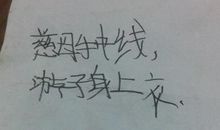 慈母手中线，
游子身上衣.